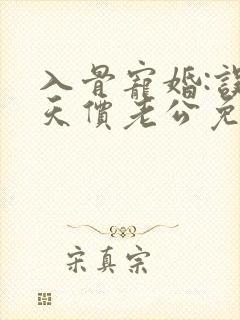 入骨寵婚:誤
天價老公免
宋真宗